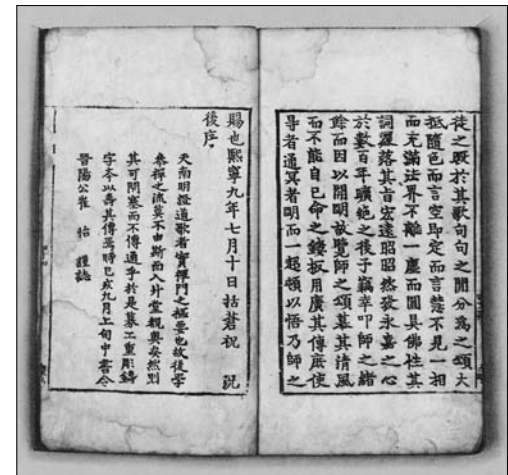 徒之於其歌句句之間分為之頌大
抵隨色而言空即定而言慧不見一相
而充滿法界不離一塵而圓具佛性其
詞羅落其旨宏遠昭昭然發永嘉之心
於數百年曠絶之後予竊幸叩師之緒
餘而因以開明故覽師之頌慕其清風
而不能自已命之鏤板用廣其傳庶使
導者通冥者明而一超頓以悟乃師之
賜也熙寧九年七月十日括蒼祝 況
後序
夫南明證道歌者實禪門之樞要也故後學
叅禪之流莫不由斯而入升堂覩奧矣然則
其可閉塞而不傳通乎於是募工重彫鑄
字本以壽其傳焉時己亥九月上旬中書令
晉陽公崔 怡 謹誌